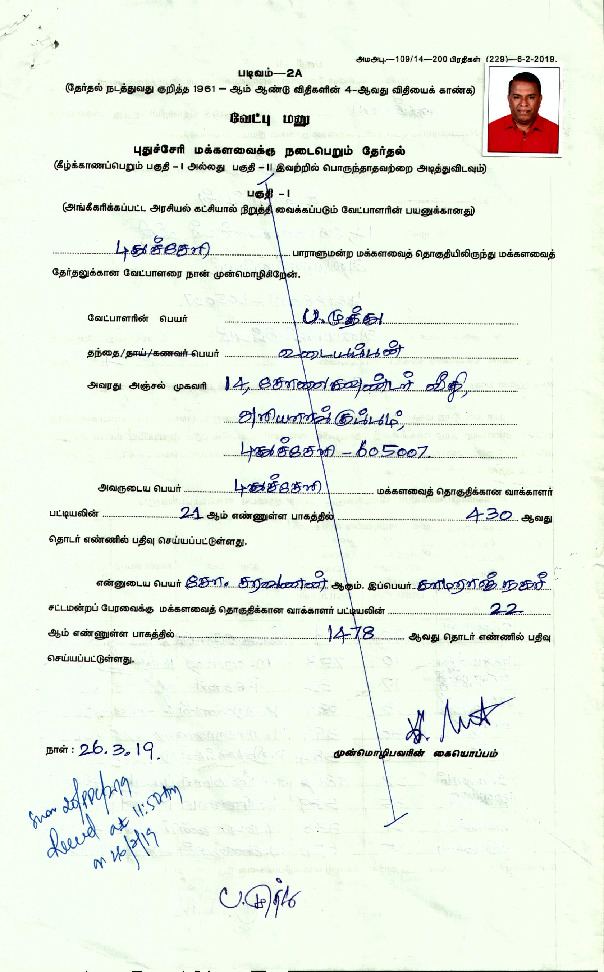 அமஅபு.—109/14—200 பிரதிகள் (229)—6-2-2019.
படிவம்—2A
(தேர்தல் நடத்துவது குறித்த 1961 – ஆம் ஆண்டு விதிகளின் 4-ஆவது விதியைக் காண்க)
வேட்பு மனு
புதுச்சேரி மக்களவைக்கு நடைபெறும் தேர்தல்
(கீழ்க்காணப்பெறும் பகுதி -I அல்லது பகுதி -II இவற்றில் பொருந்தாதவற்றை அடித்துவிடவும்)
பகுதி -I
(அங்கீகரிக்கப்பட்ட அரசியல் கட்சியால் நிறுத்தி வைக்கப்படும் வேட்பாளரின் பயனுக்கானது)
புதுச்சேரி பாராளுமன்ற மக்களவைத் தொகுதியிலிருந்து மக்களவைத்
தேர்தலுக்கான வேட்பாளரை நான் முன்மொழிகிறேன்.
வேட்பாளரின் பெயர் ப. முத்து
தந்தை/தாய்/கணவர் பெயர்
அவரது அஞ்சல் முகவரி 14, வீதி,
அரியாங்குப்பம்,
புதுச்சேரி – 605007.
அவருடைய பெயர் புதுச்சேரி மக்களவைத் தொகுதிக்கான வாக்காளர்
பட்டியலின் 21 ஆம் எண்ணுள்ள பாகத்தில் 430 ஆவது
தொடர் எண்ணில் பதிவு செய்யப்பட்டுள்ளது.
என்னுடைய பெயர் கோ. சரவணன் ஆகும். இப்பெயர் காமராஜ் நகர்
சட்டமன்றப் பேரவைக்கு மக்களவைத் தொகுதிக்கான வாக்காளர் பட்டியலின் 22
ஆம் எண்ணுள்ள பாகத்தில் 1478 ஆவது தொடர் எண்ணில் பதிவு
செய்யப்பட்டுள்ளது.
நாள் : 26.3.19.
முன்மொழிபவரின் கையொப்பம்
at 11:50 AM
on 26/3/19